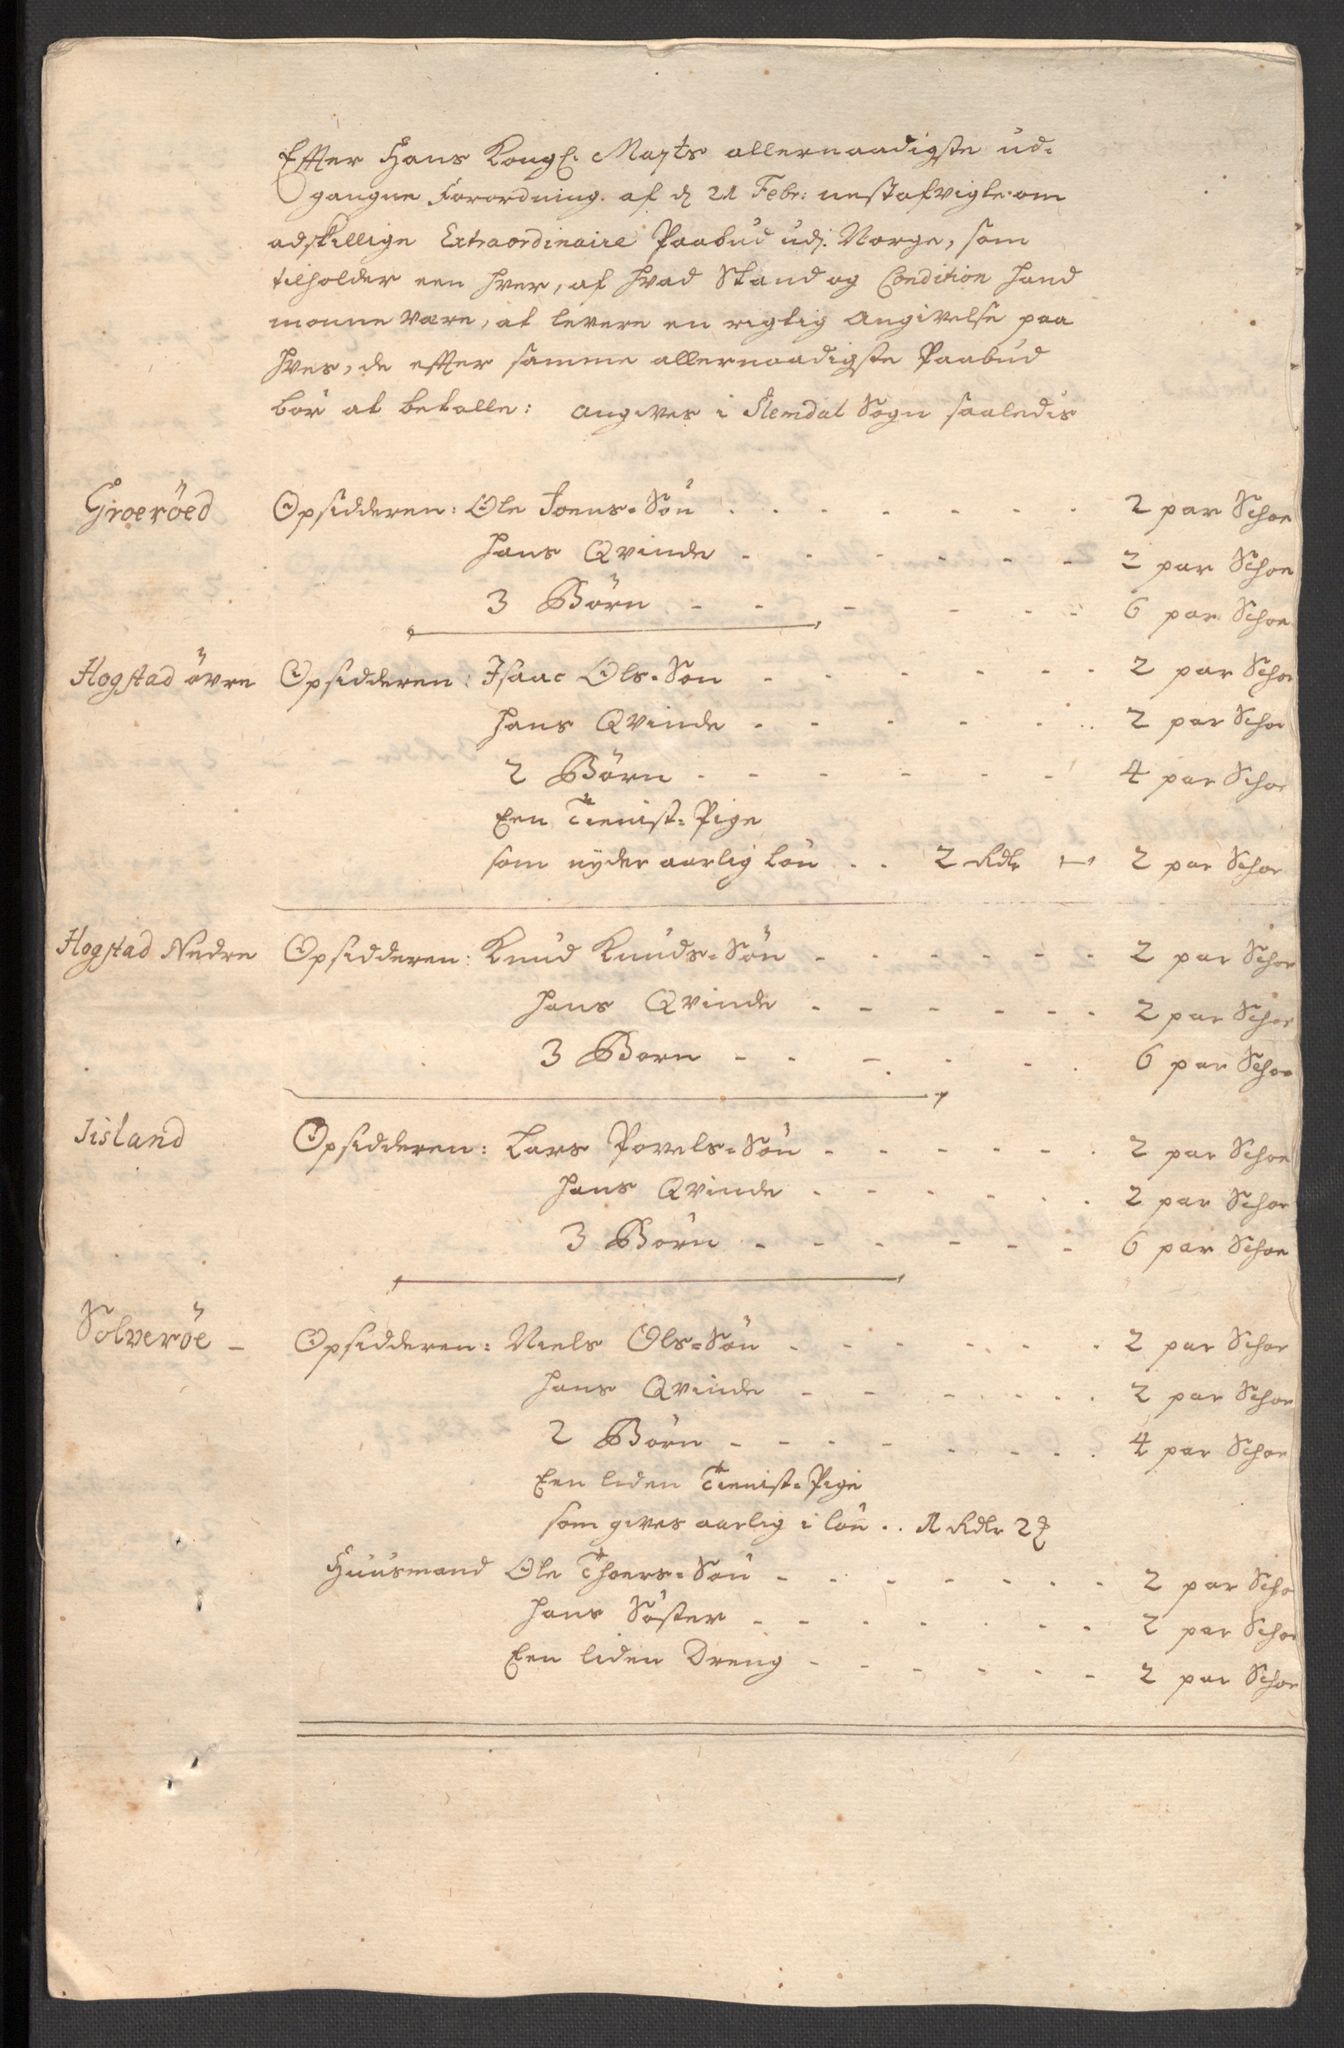 Effter Hans Kongl: Mayts allernaadigste ud-
gangne Forordning. af d 21 Febr: nestafvigte om
adskillige Extraordinaire Paabud udj Norge, som
tilholder een hver, af hvad Stand og Condition hand
monne være, at levere en rigtig Angivelse paa
hves, de effter samme allernaadigste Paabud
bör at betalle: angives i Slemdal Sogn saaledis
Groeröed Opsidderen: Ole Joens-Sön 2 par Schoe
Hans Qvinde 2 par Schoe
3 Börn 6 par Schoe
Hogstad övre Opsidderen: Isaac Ols-Son 2 par Schoe
Hans Qvinde 2 par Schoe
2 Börn 4 par Schoe
Een Tienist-Pige
som nyder aarlig Lön 2 Rdlr 2 par Schoe
Hogstad Nedre Opsidderen: Knud Knuds-Sön 2 par Schoe
Hans Qvinde 2 par Schoe
3 Born 6 par Schoe
Iisland Opsidderen: Lars Povels-Sön 2 par Schoe
Hans Qvinde 2 par Schoe
3 Börn 6 par Schoe
Solveröe - Opsidderen: Niels Ols-Sön 2 par Schoe
Hans Qvinde 2 par Schoe
2 Börn 4 par Schoe
Een liden Tienist-Pige
som gives aarlig i lön 1 Rdlr 2
Huusmand Ole Thoers-Son 2 par Scho
Hans Söster 2 par Schoe
Een liden Dreng 2 par Schoe